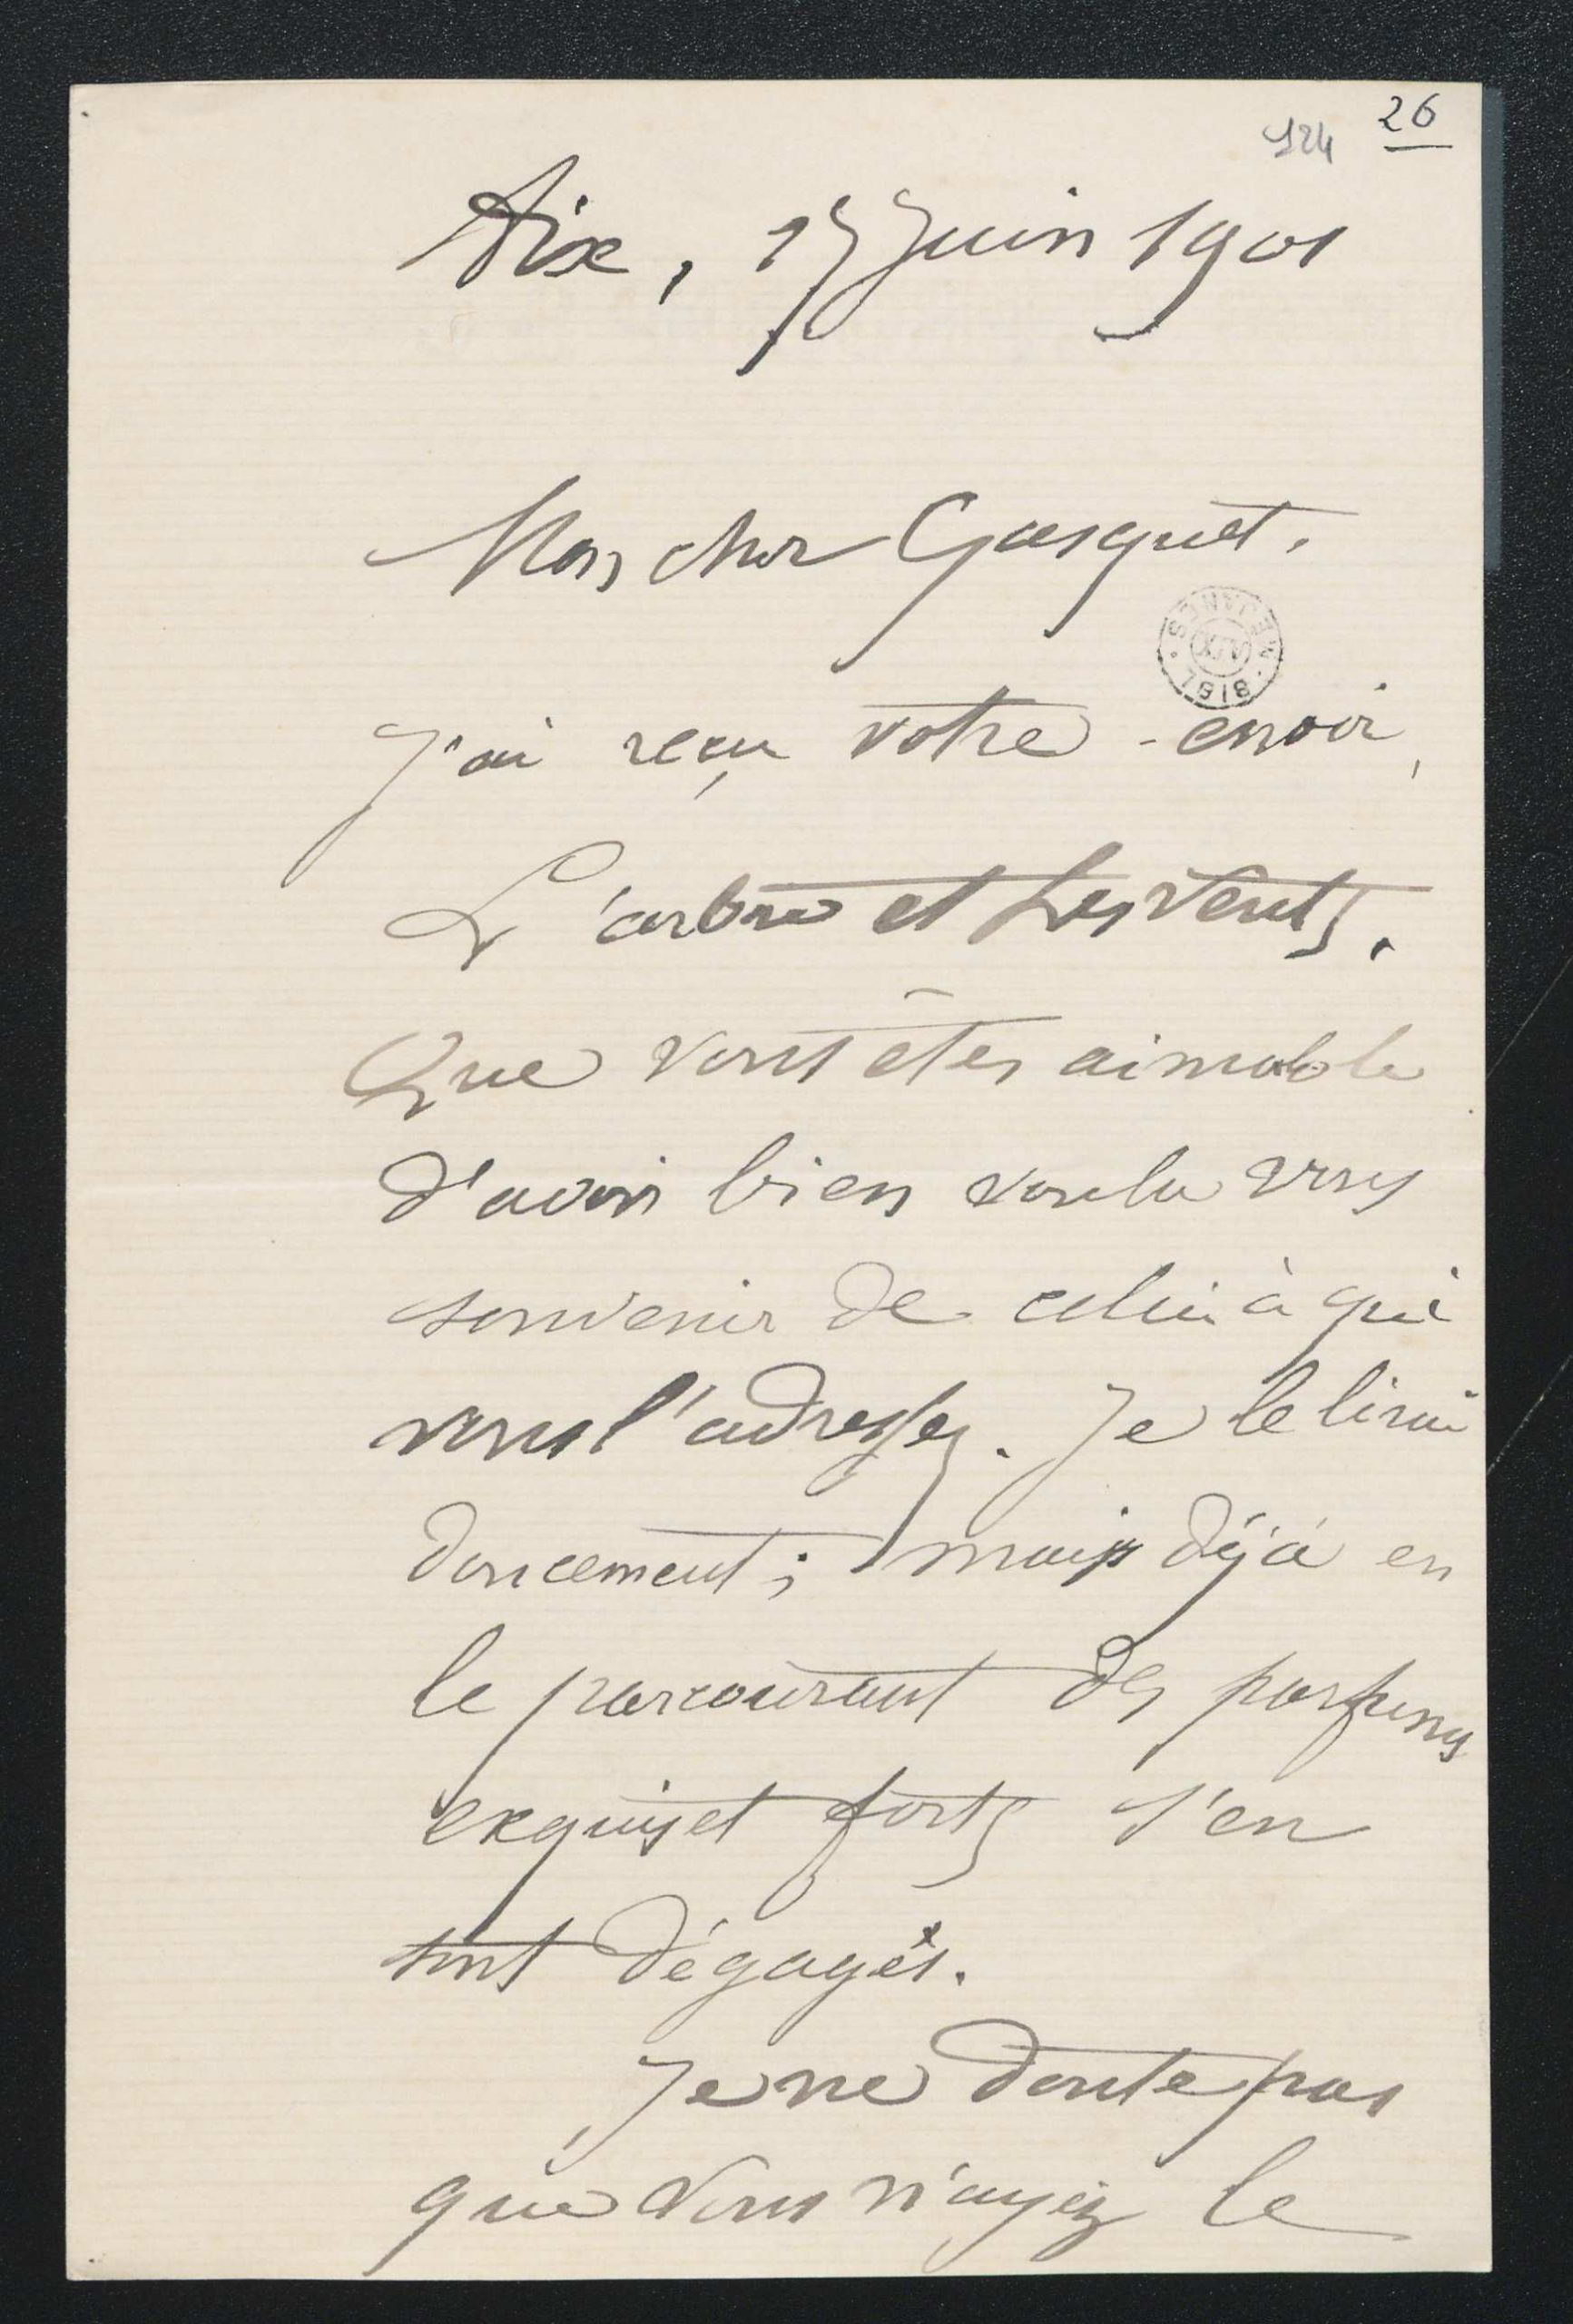 124 26
Aix, 17 Juin 1901
Mon cher Gasquet,
MÉJANES
BIBL
AIX
J'ai reçu votre envoi,
L'arbre et Les Vents.
Que vous êtes aimable
d'avoir bien voulu vous
souvenir de celui à qui
vous l'adressez. Je le lirai
doucement; mais déjà en
le parcourant des parfums
exquis et forts s'en
sont dégagés.
Je ne doute pas
que vous n'ayez le